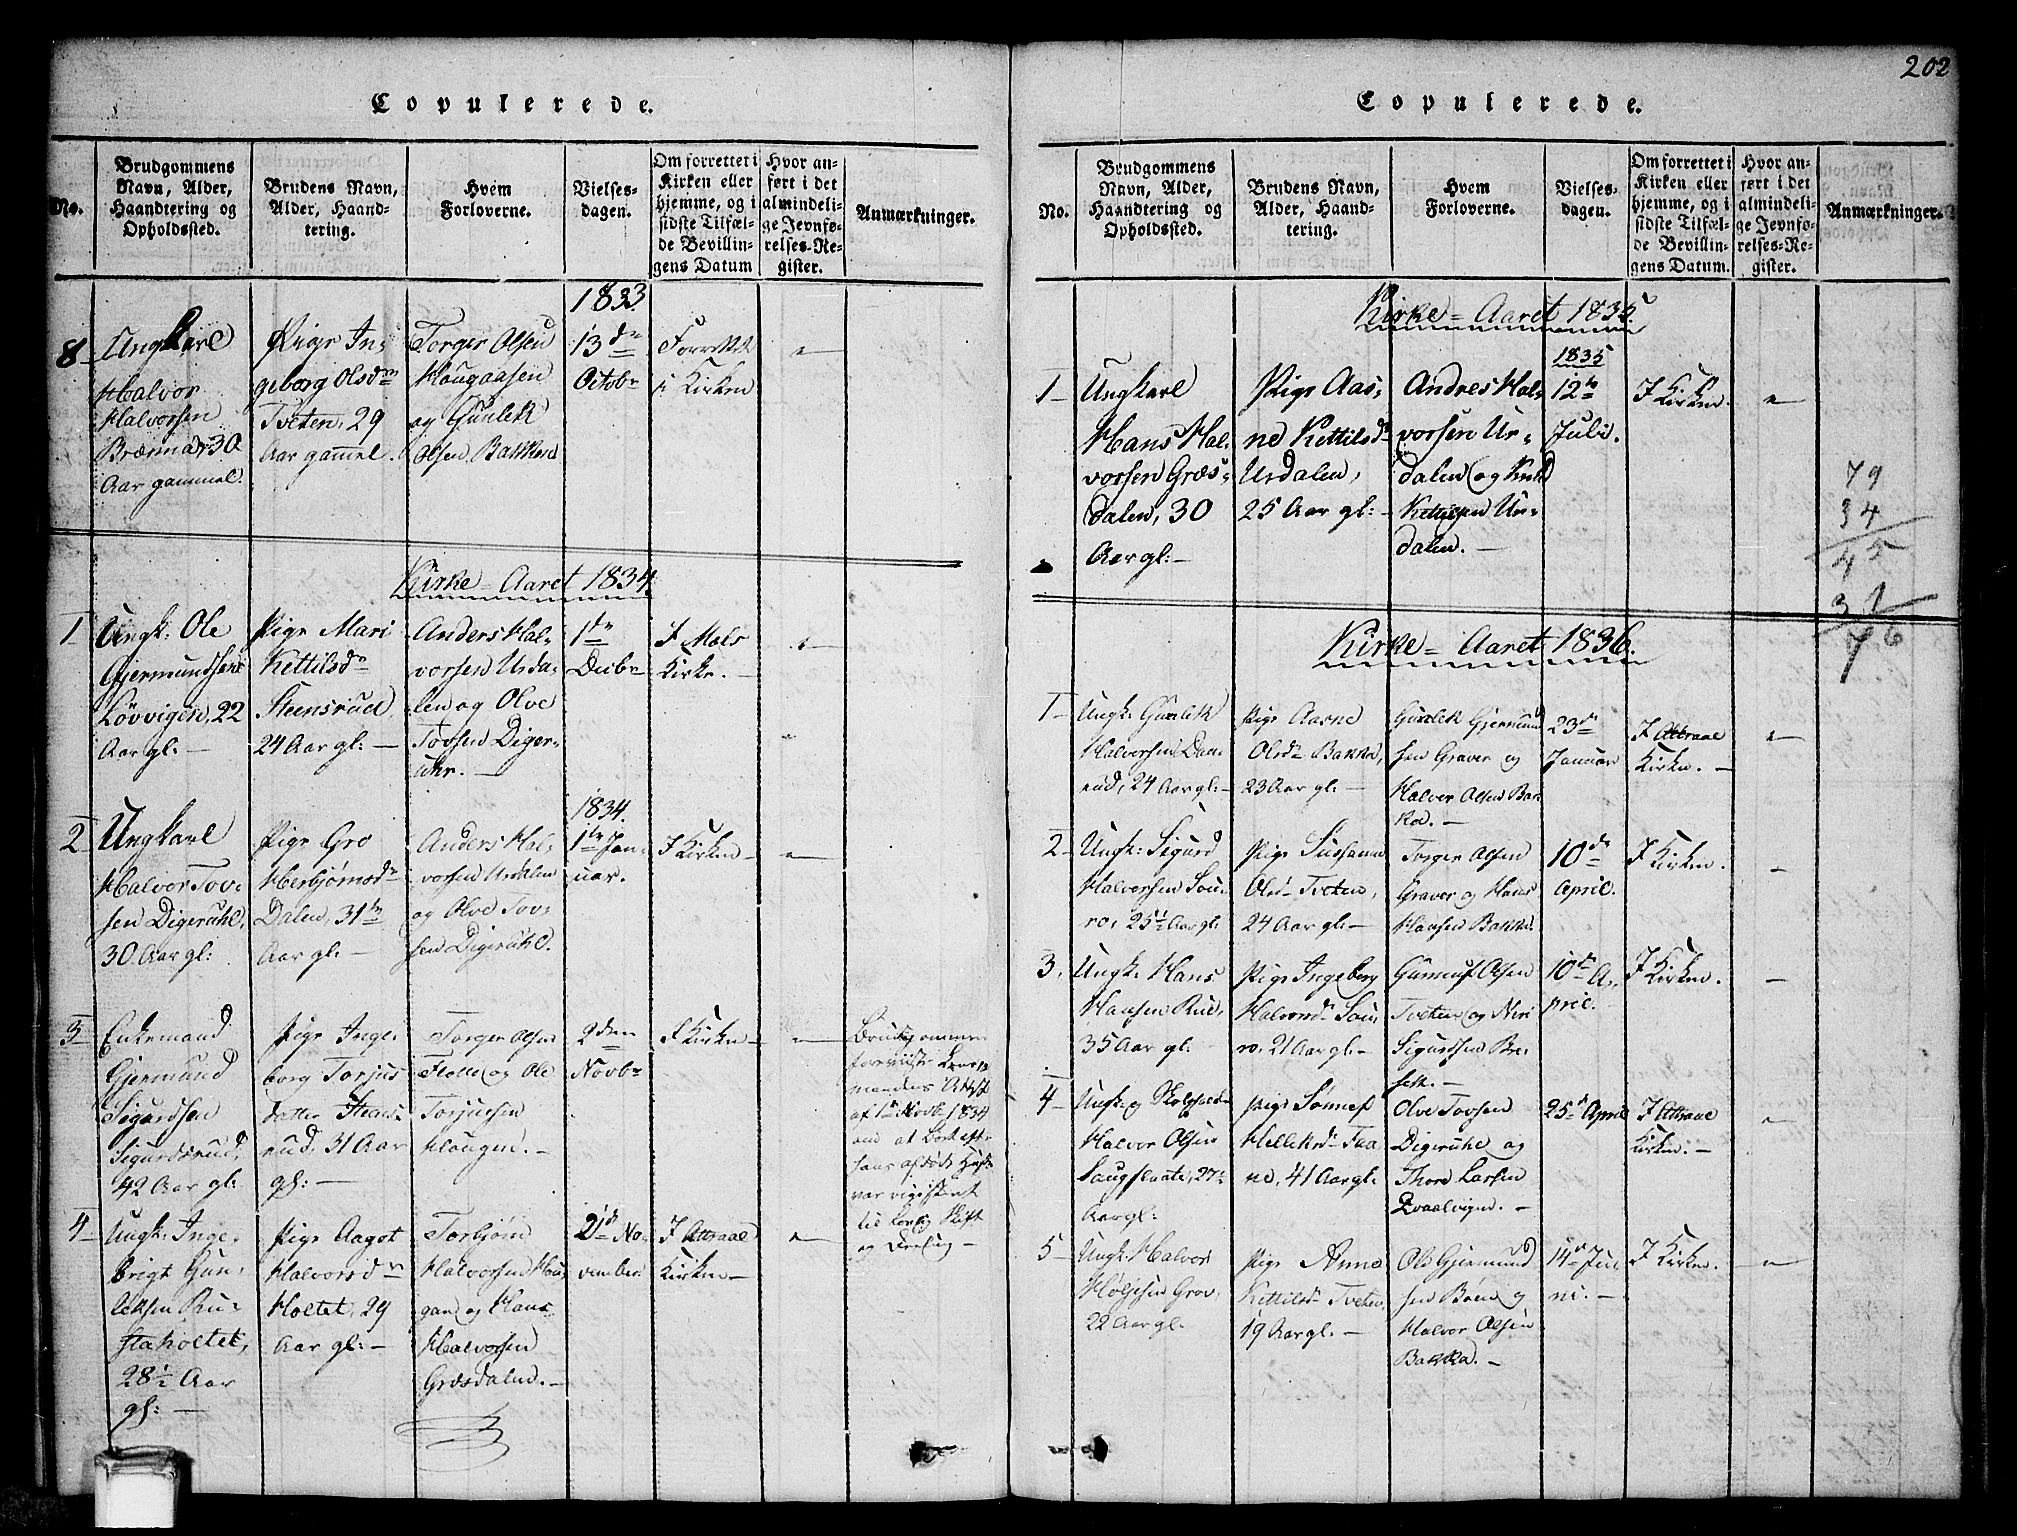 202
Copulerede.
No.
Brudgommens
Navn, Alder,
Haandtering og
Opholdssted.
Brudens Navn,
Alder, Haand-
tering.
Hvem
Forloverne.
Vielses-
dagen.
Om forrettet i
Kirken eller
hjemme, og i
sidste Tilfæl-
de Bevillin-
gens Datum
Hvor an-
ført i det
almindeli-
ge Jevnfø-
relses-Re-
gister.
Anmærkninger.
8
Ungkarl
Halvor
Halvorsen
Brænna, 30
Aar gammel.
Pige In-
geborg Olsdr
Tveten, 29
Aar gammel.
Torger Olsen
Haugaasen
og Gunlek
Olsen Bakken
1833
13de
Octobr
Forrettet
i Kirken
Kirke-Aaret 1834.
1
Ungk: Ole
Gjermundsen
Løvvigen, 22
Aar gl: —
Pige Mari
Kettilsdr
Steensrud
24 Aar gl: —
Anders Hal-
vorsen Urda-
len og Olve
Tovsen Diger-
uhr. —
1te
Decbr
I Mæls
Kirke. —
2
Ungkarl
Halvor Tov-
sen Digeruhl,
30 Aar gl:
Pige Gro
Herbjørnsdr
Dalen, 31te
Aar gl: —
Anders Hal-
vorsen Urdalen
og Olve Tov-
sen Digeruhl.
1834.
1te Jan-
uar.
I Kirken —
3
Enkemand
Gjermund
Sigurdsen
Sigurdsrud,
42 Aar gl:
Pige Inge-
borg Torjus
datter Steens-
rud, 31 Aar
gl: —
Torger Olsen
Flotte og Ole
Torjussen
Haugen. —
2den
Novbr
I Kirken —
Brudgommen
foreviiste Lens-
mandens Attest
af 1te Novbr 1834
om at Boet eft-
hans afdøde Hust
var registeret
til Lovlig Skift
og Deeling —
4
Ungk: Inge-
brigt Gun-
leksen Ru-
staholtet,
28½ Aar
gl: —
Pige Aagot
Halvorsdr
Holtet, 29
Aar gl: —
Torbjøn
Halvorsen Hau-
gan og Hans
Halvorsen
Græsdalen. —
21de No-
vember
I Attraae
Kirken —
Copulerede.
No.
Brudgommens
Navn, Alder,
Haandtering og
Opholdssted.
Brudens Navn,
Alder, Haand-
tering.
Hvem
Forloverne.
Vielses-
dagen.
Om forrettet i
Kirken eller
hjemme, og i
sidste Tilfæl-
de Bevillin-
gens Datum.
Hvor an-
ført i det
almindeli-
ge Jevnfø-
relses-Re-
gister.
Anmærkninger.
Kirke-Aaret 1835.
1
Ungkarl
Hans Hal-
vorsen Græs-
dalen, 30
Aar gl: —
Pige Aas-
ne Kettilsdr
Urdalen,
25 Aar gl: —
Andres Hal-
vorsen Ur-
dalen og Knud
Kettilsen Ur-
dalen. —
1835
12te
Juli.
I Kirken.
79
34
45
31
76
Kirke-Aaret 1836.
1
Ungk: Gunlek
Halvorsen Daa-
rud, 24 Aar gl: —
Pige Aasne
Olsdr Bakka,
23 Aar gl: —
Gunlek Gjermund
sen Graver og
Halvor Olsen Bak-
ka. —
23de
Januar
I Attraae
Kirken. —
2
Ungk: Sigurd
Halvorsen Sou-
ro, 25½ Aar gl:
Pige Susanne
Olsdr Tveten,
24 Aar gl: —
Torger Olsen
Graver og Hans
Hansen Bakka.
10de
April.
I Kirken.
3.
Ungk: Hans
Hansen Rud,
35 Aar gl:
Pige Ingeborg
Halvorsdr Sou-
ro, 21 Aar gl: —
Gunnuf Olsen
Tveten og Niri
Sigurdsen Bæ-
sek. —
10de A-
pril.
I Kirken.
4
Halvor Olsen
Haugflaate, 27
Aar gl:
Pige Sønnef
Helleksdr Faa
ne, 41 Aar gl:
Olve Tovsen
Digeruhl og
Thore Larsen
Qvaalvigen. —
25de April
I Attraae
Kirken. —
5
Ungk: Halvor
Høljesen Grov,
22 Aar gl:
Pige Anne
Kettilsdr Tveten,
19 Aar gl: —
Ole Gjermund
sen Bøen og
Halvor Olsen
Bakka. —
14de Ju-
ni. —
I Kirken.